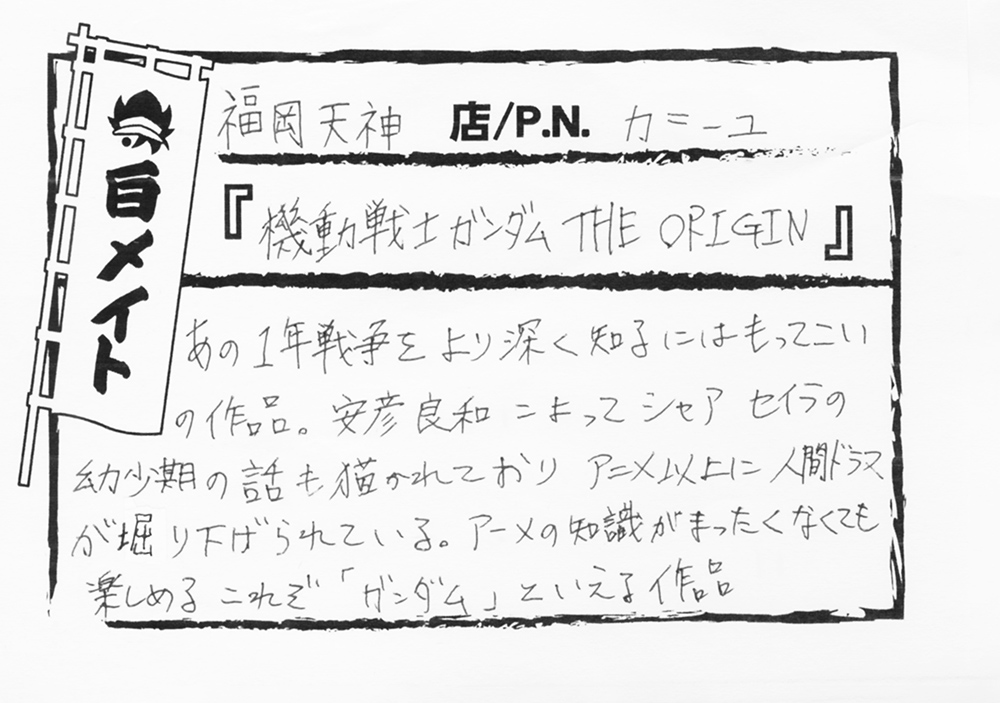 白メイト
福岡天神 店/P.N. カニーユ
『機動戦士ガンダム THE ORIGIN』
あの1年戦争をより深く知るにはもってこい
の作品。安彦良和によってシャア セイラの
幼少期の話も描かれており アニメ以上に人間ドラマ
が堀り下げられている。アニメの知識がまったくなくても
楽しめる これぞ「ガンダム」といえる作品